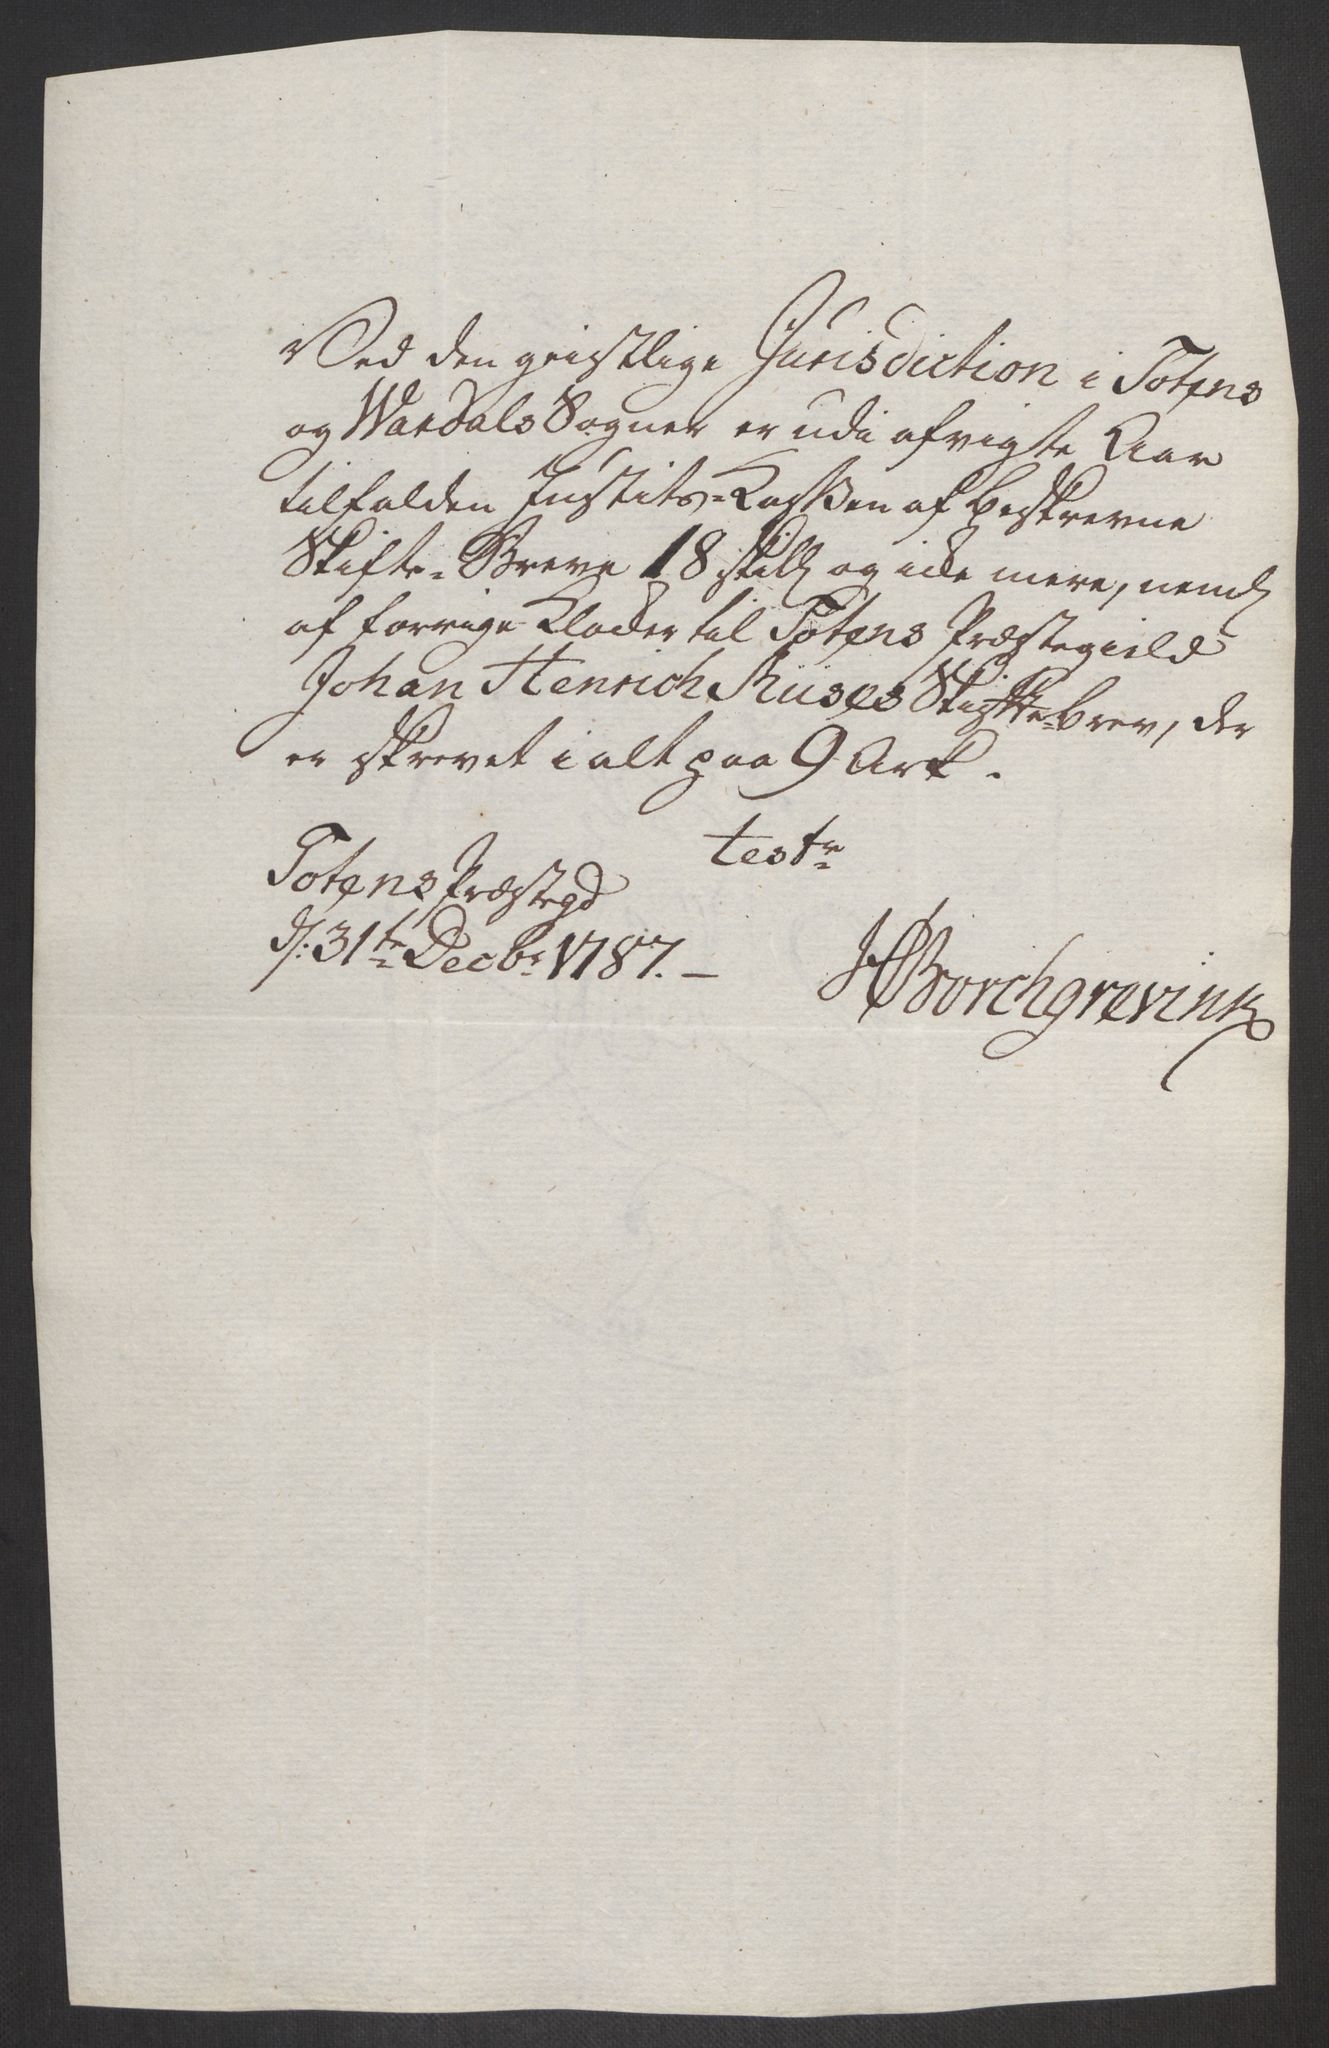 Ved den geistlige Jurisdiction i Totens
og Wardals Sogner er udi afvigte Aar
tilfalden Justits-Kassen af beskrevne
Skifte-Breve 18 skill og icke mere, neml
af forrige Klocker til Totens Præstegield
Johan Henrich Riises Skiftebrev, der
er skrevet i alt paa 9 Ark.
teste
Totens Præstegd
d: 31te Decbr 1787. –
HBorchgrevink